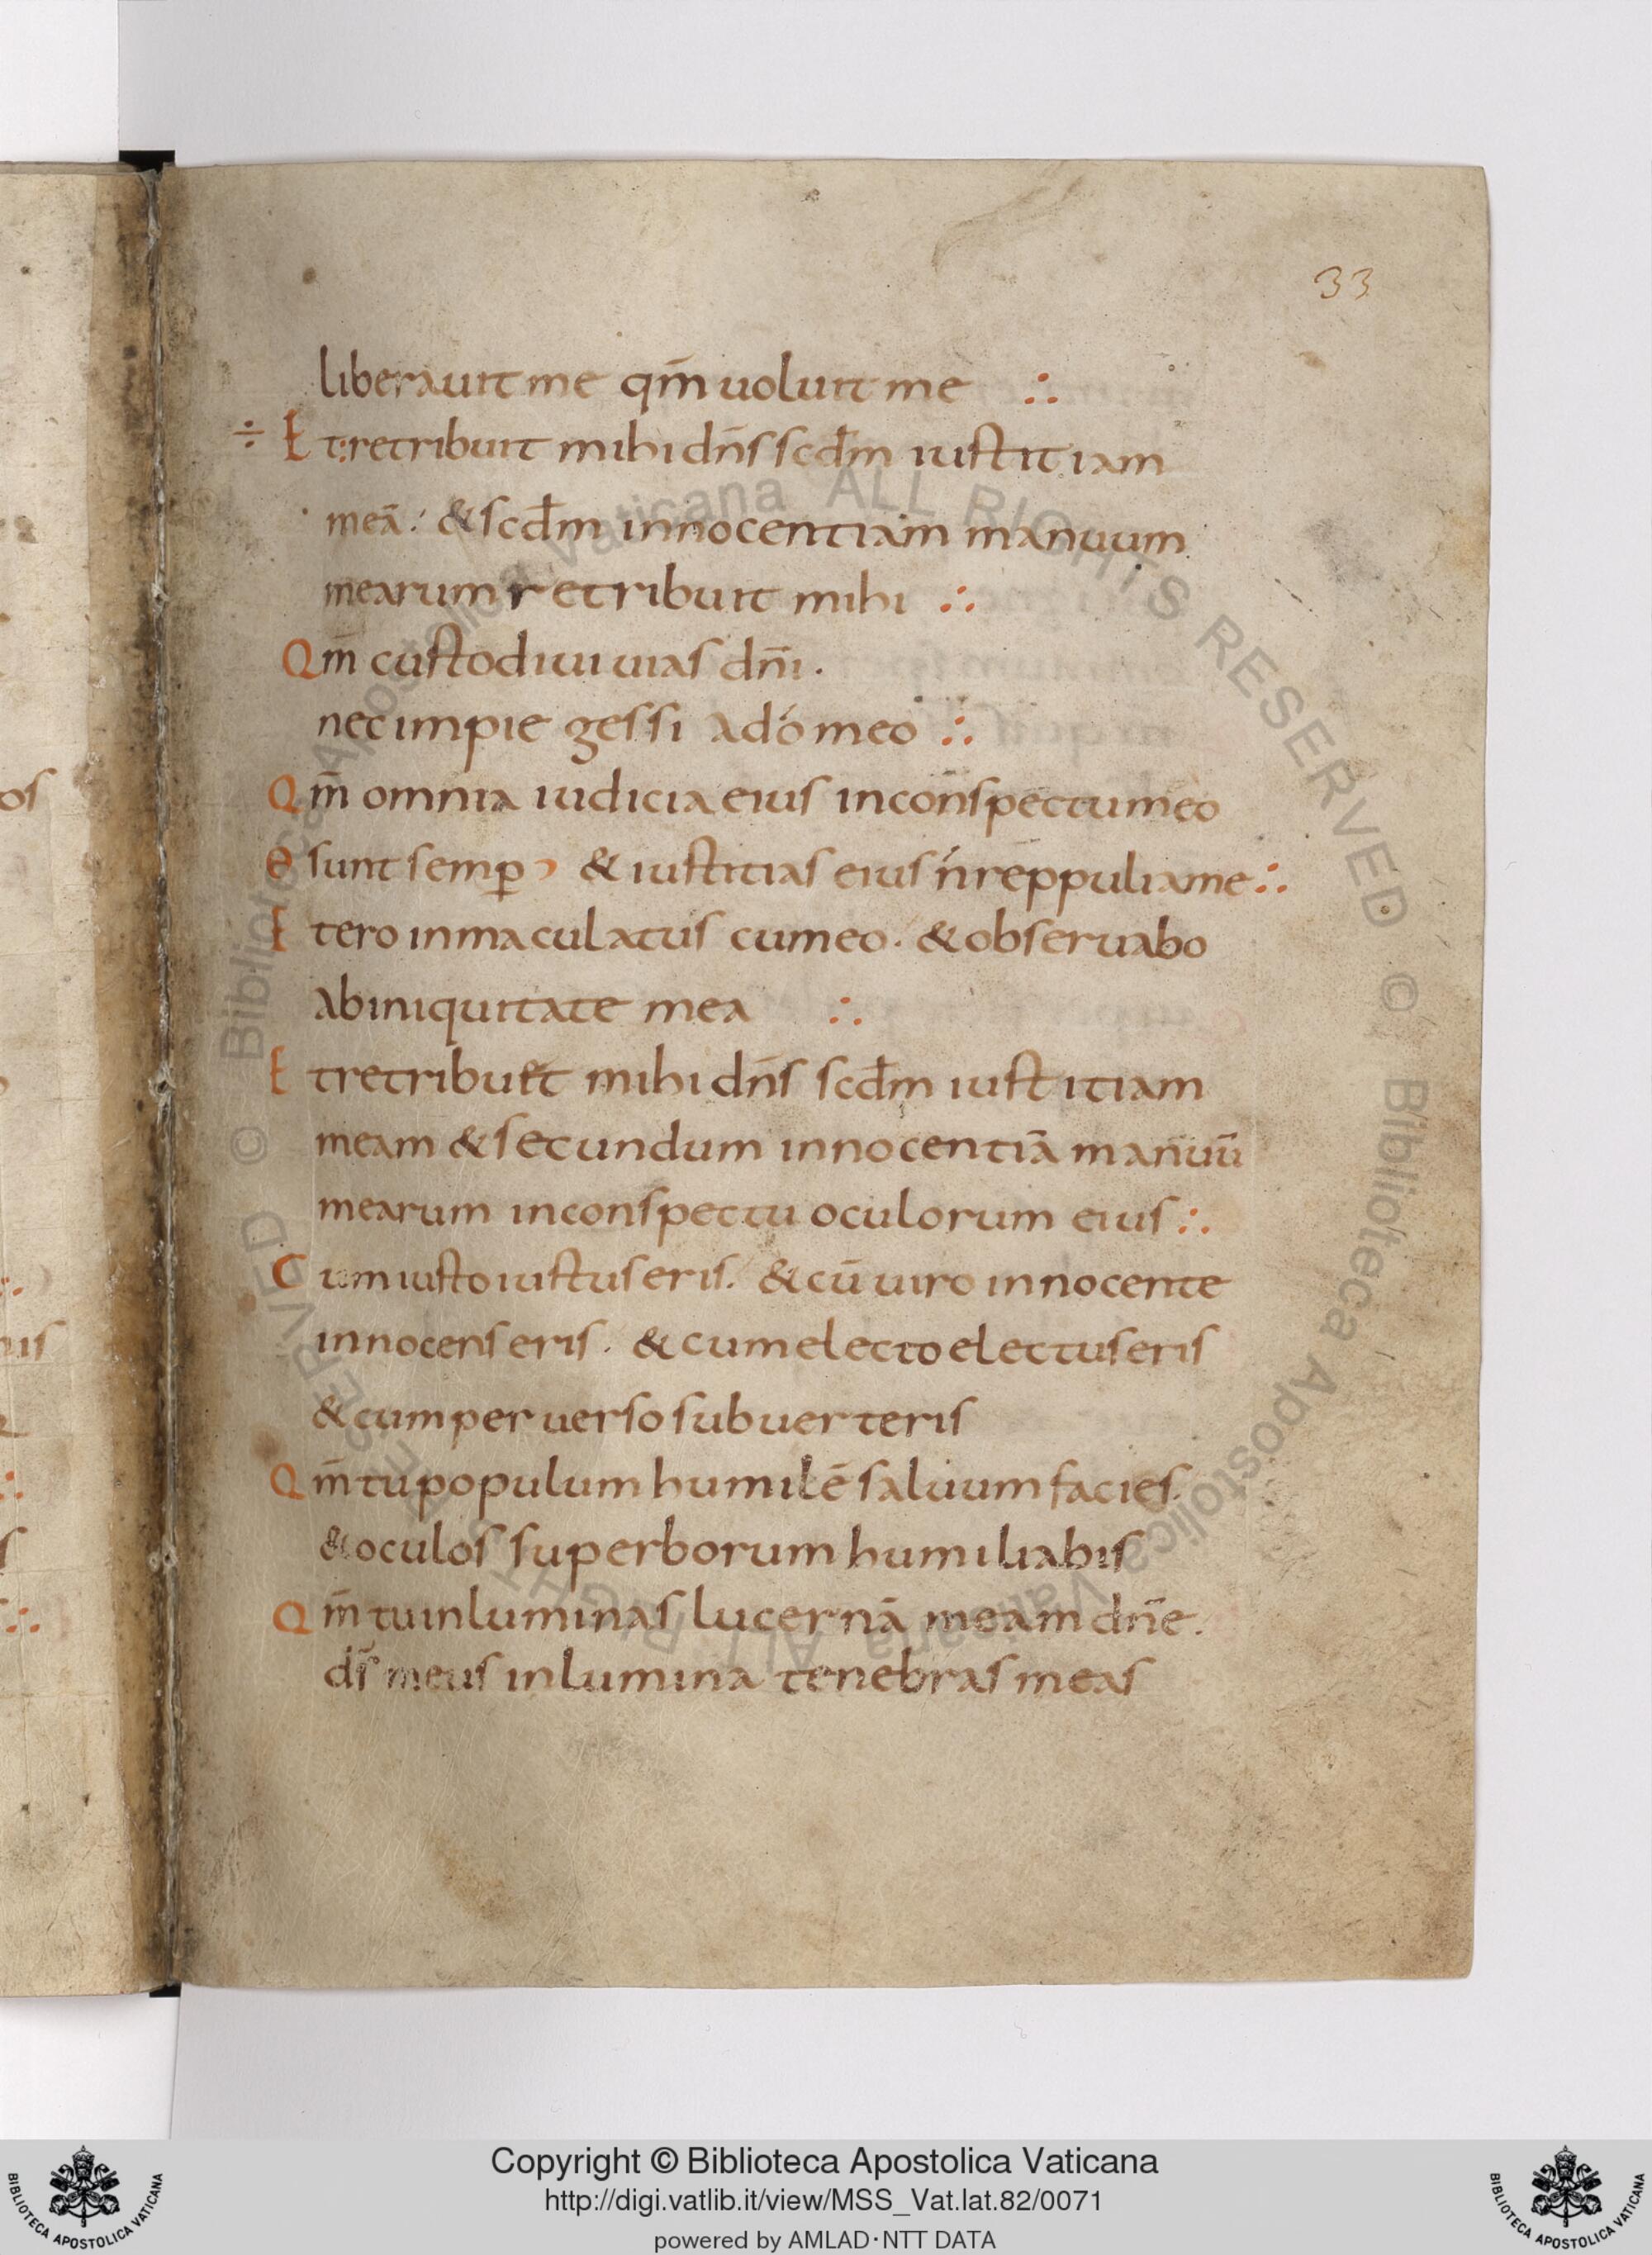 33
liberauit me qm̄ uoluit me ∴
÷ Et retribuit mihi dn̄s scd̄m iustitiam
meā. & scd̄m innocentiam manuum
mearum retribuit mihi ∴
Qm̄ custodiui uias dn̄i.
nec impie gessi a dō meo ∴
Qm̄ omnia iudicia eius in conspectu meo
sunt semꝑ & iustitias eius n̄ reppuli a me ∴
Et ero inmaculatus cum eo. & obseruabo
ab iniquitate mea ∴
Et retribuet mihi dn̄s scd̄m iustitiam
meam & secundum innocentiā manuū
mearum in conspectu oculorum eius ∴
Cum iusto iustus eris. & cū uiro innocente
innocens eris. & cum electo electus eris
& cum peruerso subuerteris
Qm̄ tu populum humilē saluum facies.
& oculos superborum humiliabis
Qm̄ tu inluminas lucernā meam dn̄e.
ds̄ meus inlumina tenebras meas
Copyright © Biblioteca Apostolica Vaticana
http://digi.vatlib.it/view/MSS_Vat.lat.82/0071
powered by AMLAD·NTT DATA